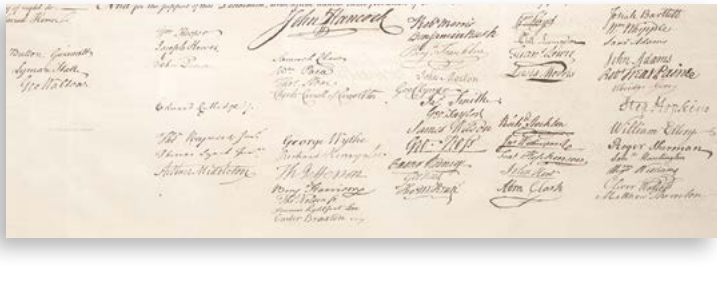 And for the support of this Declaration,
Button Gwinnett
Lyman Hall
Geo Walton
Wm Hooper
Joseph Hewes
John Penn
Edward Rutledge
Thos Heyward Junr
Thomas Lynch Junr
Arthur Middleton
John Hancock
Samuel Chase
Wm Paca
Thos Stone
Charles Carroll of Carrollton
George Wythe
Richard Henry Lee
Th Jefferson
Benj Harrison
Thos Nelson jr
Francis Lightfoot Lee
Carter Braxton
Robt Morris
Benjamin Rush
Benj Franklin
John Morton
Geo Clymer
Jas Smith
Geo Taylor
James Wilson
Geo Ross
Caesar Rodney
Geo Read
Tho M:Kean
Lewis Morris
Richd Stockton
Jno Witherspoon
Fras Hopkinson
John Hart
Abra Clark
Josiah Bartlett
Wm Whipple
Saml Adams
John Adams
Robt Treat Paine
Elbridge Gerry
Step Hopkins
William Ellery
Roger Sherman
Saml Huntington
Wm Williams
Oliver Wolcott
Matthew Thornton